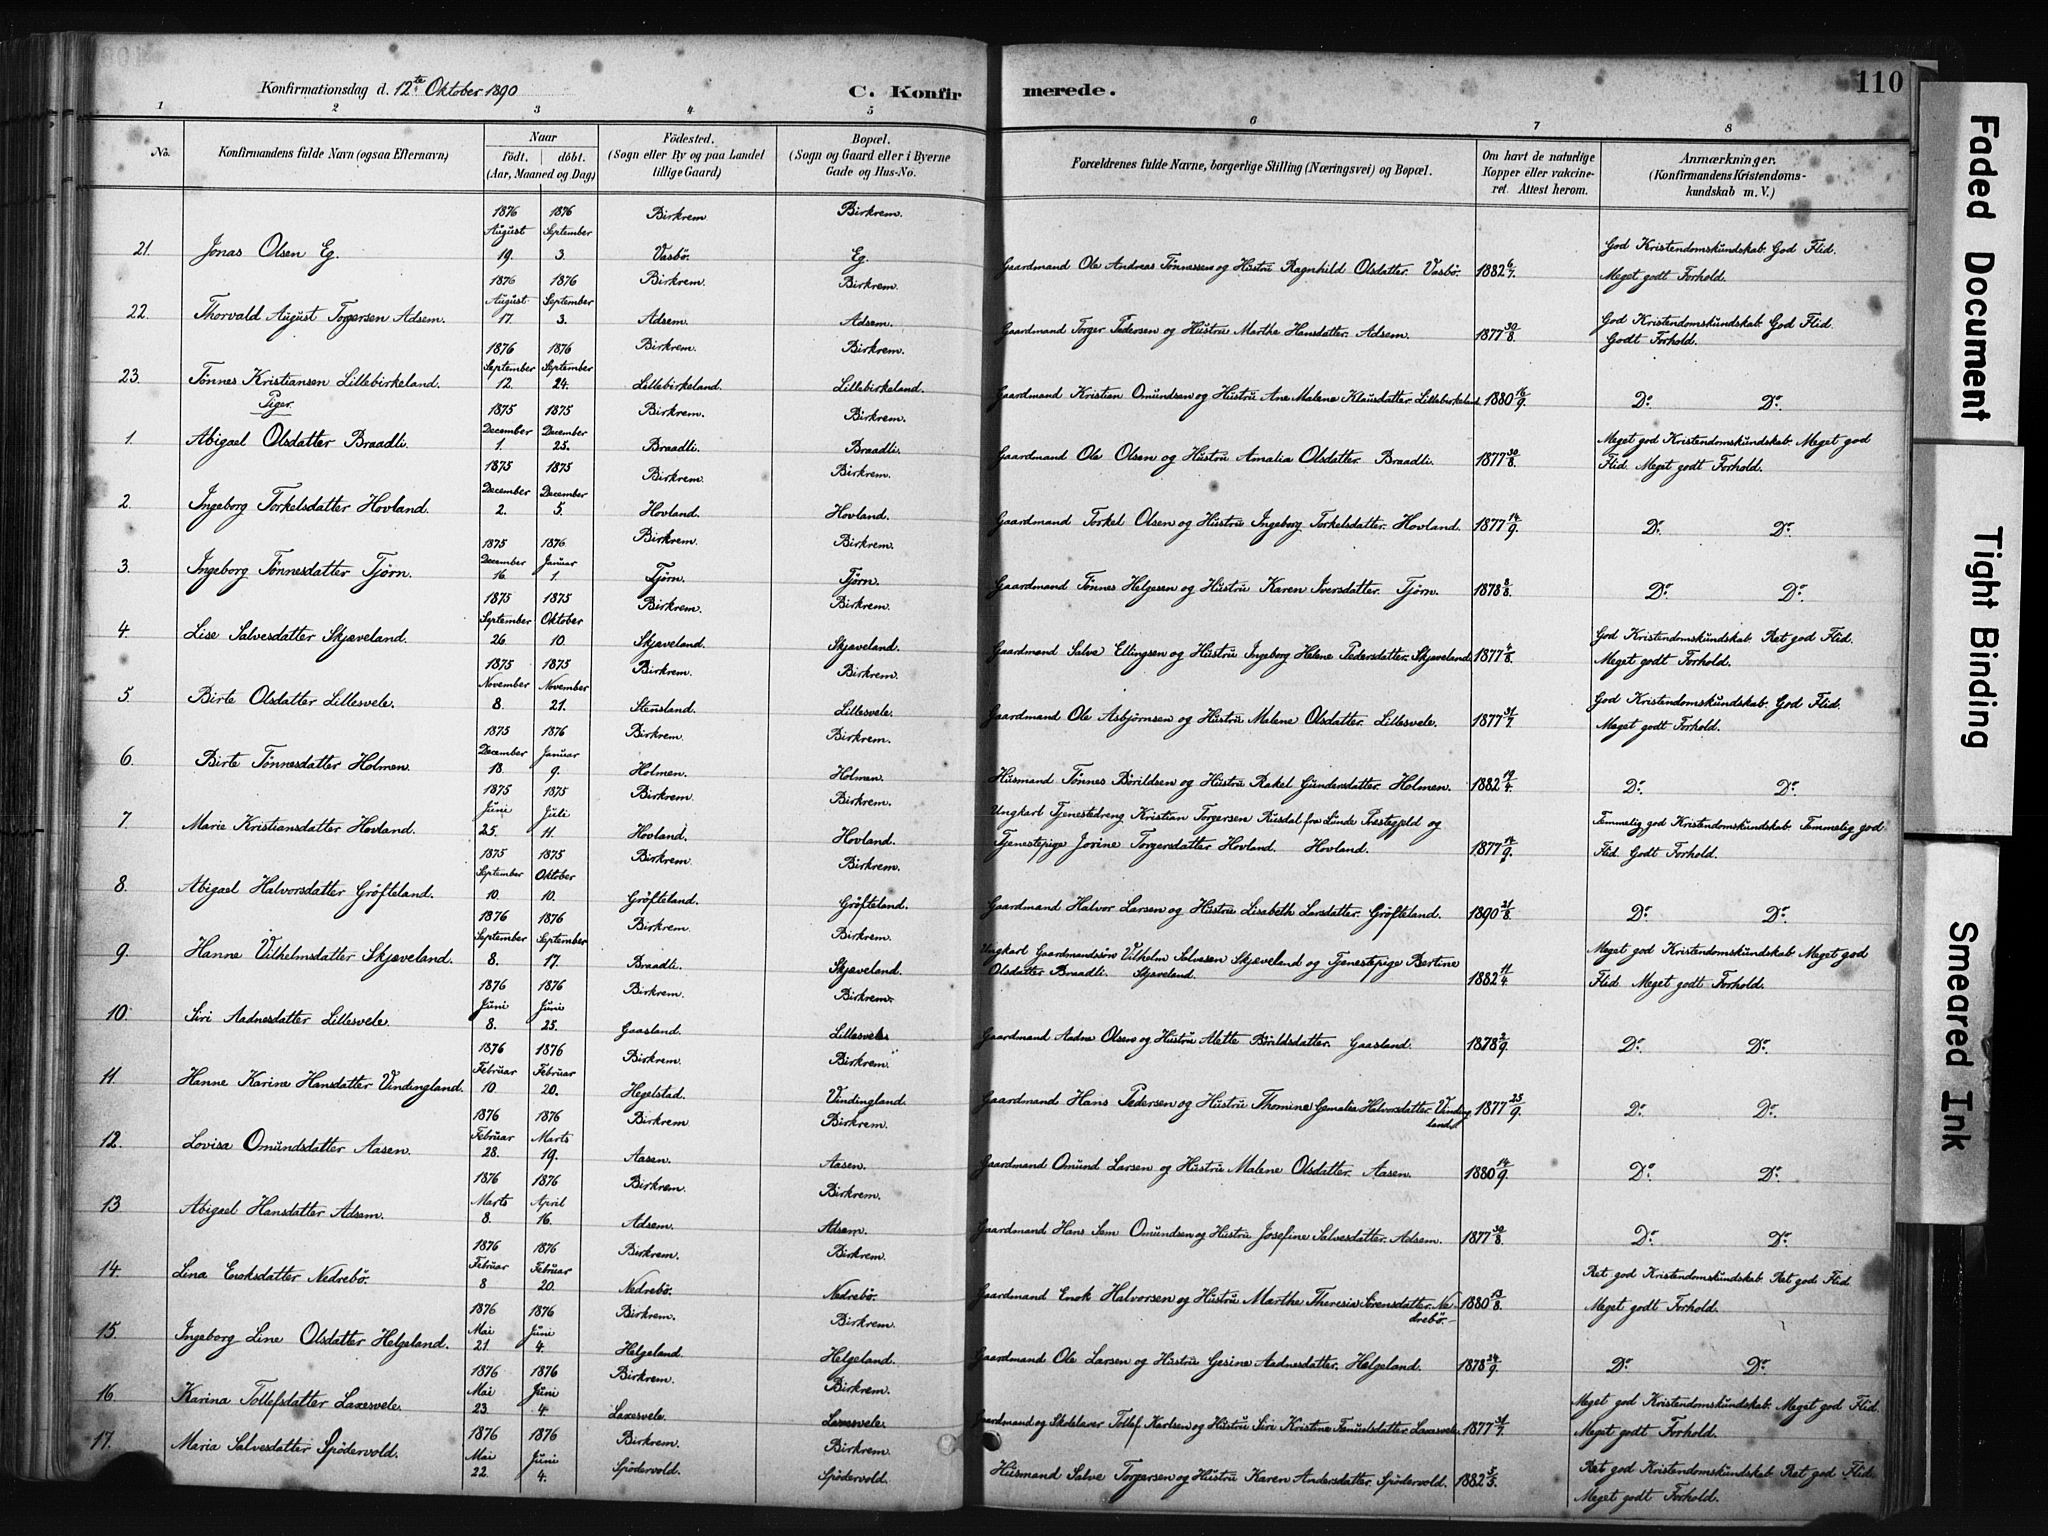 Konfirmationsdag d. 12te Oktober 1890 C. Konfirmerede. 110
1 2 3 4 5 6 7 8
No. Konfirmandens fulde Navn (ogsaa Efternavn) Naar födt. döbt. (Aar, Maaned og Dag) Födested. (Sogn eller By og paa Landet tillige Gaard) Bopæl. (Sogn og Gaard eller i Byerne Gade og Hus-No. Forældrenes fulde Navne, borgerlige Stilling (Næringsvei) og Bopæl. Om havt de naturlige Kopper eller vakcineret. Attest herom. Anmærkninger. (Konfirmandens Kristendomskundskab m. V.)
21. Jonas Olsen Eg. 1876 August 19. 1876 September 3. Birkrem Vasbö. Birkrem. Eg. Gaardmand Ole Andreas Tönnessen og Hustru Ragnhild Olsdatter. Vasbö. 1882 6/7. God Kristendomskundskab. God Flid. Meget godt Forhold.
22. Thorvald August Torgersen Adsem. 1876 August 17. 1876 September 3. Birkrem. Adsem. Birkrem. Adsem. Gaardmand Torger Pedersen og Hustru Marthe Hansdatter. Adsem. 1877 30/8. God Kristendomskundskab. God Flid. Godt Forhold.
23. Tønnes Kristiansen Lillebirkeland. 1876 September 12. 1876 September 24. Birkrem. Lillebirkeland. Birkrem. Lillebirkeland. Gaardmand Kristian Omundsen og Hustru Ane Malene Klausdatter. Lillebirkeland 1880 16/9. Do. Do.
Piger.
1. Abigael Olsdatter Braadli. 1875 December 1. 1875 December 25. Birkrem. Braadli. Birkrem. Braadli. Gaardmand Ole Olsen og Hustru Amalia Olsdatter. Braadli. 1877 30/8. Meget god Kristendomskundskab. Meget god Flid. Meget godt Forhold.
2. Ingeborg Torkelsdatter Hovland. 1875 December 2. 1875 December 5. Birkrem. Hovland. Birkrem. Hovland. Gaardmand Torkel Olsen og Hustru Ingeborg Torkelsdatter. Hovland. 1877 14/9. Do. Do.
3. Ingeborg Tønnesdatter Tjørn. 1875 December 16. 1876 Januar 1. Birkrem. Tjørn. Birkrem. Tjørn. Gaardmand Tönnes Helgesen og Hustru Karen Iversdatter. Tjørn. 1878 8/8. Do. Do.
4. Lise Salvesdatter Skjæveland. 1875 September 26 1875 Oktober 10. Birkrem. Skjæveland. Birkrem. Skjæveland. Gaardmand Salve Ellingsen og Hustru Ingeborg Helene Pedersdatter. Skjæveland. 1877 4/8. God Kristendomskundskab. Ret god Flid. Meget godt Forhold.
5. Birte Olsdatter Lillesvele. 1875 November 8. 1875 November 21. Birkrem. Stensland. Birkrem. Lillesvele. Gaardmand Ole Asbjörnsen og Hustru Malene Olsdatter. Lillesvele. 1877 31/7. God Kristendomskundskab. God Flid. Meget godt Forhold.
6. Birte Tönnesdatter Holmen. 1875 December 18. 1876 Januar 9. Birkrem. Holmen. Birkrem. Holmen. Husmand Tönnes Börildsen og Hustru Rakel Gundersdatter. Holmen. 1882 19/4. Do. Do.
7. Marie Kristiansdatter Hovland. 1875 Juni 25. 1875 Juli 11. Birkrem. Hovland. Birkrem. Hovland. Ungkarl Tjenestedreng Kristian Torgersen Rusdal fra Lunde Præstegjeld og Tjenestepige Jorine Torgersdatter Hovland. Hovland. 1877 14/9. Temmelig god Kristendomskundskab. Temmelig god Flid. Godt Forhold.
8. Abigael Halvorsdatter Gröfteland. 1875 September 10. 1875 Oktober 10. Birkrem. Gröfteland. Birkrem. Gröfteland. Gaardmand Halvor Larsen og Hustru Lisabeth Larsdatter. Gröfteland. 1890 21/8. Do. Do.
9. Hanne Vilhelmsdatter Skjæveland. 1876 September 8. 1876 September 17. Birkrem. Braadli. Birkrem. Skjæveland. Ungkarl Gaardmandssön Vilhelm Salvesen Skjæveland og Tjenestepige Bertine Olsdatter Braadli. Skjæveland. 1882 11/4. Meget god Kristendomskundskab. Meget god Flid. Meget godt Forhold.
10. Siri Aadnesdatter Lillesvele. 1876 Juni 8. 1876 Juni 25. Birkrem. Gaasland. Birkrem. Lillesvele. Gaardmand Aadne Olsen og Hustru Alette Börildsdatter. Gaasland. 1878 2/9. Do. Do.
11. Hanne Karine Hansdatter Vindingland. 1876 Februar 10. 1876 Februar 20. Birkrem. Hegelstad. Birkrem. Vindingland. Gaardmand Hans Pedersen og Hustru Thomine Gemalia Halvorsdatter. Vindingland. 1877 25/9. Do. Do.
12. Lovisa Omundsdatter Aasen. 1876 Februar 28. 1876 Marts 19. Birkrem. Aasen. Birkrem. Aasen. Gaardmand Omund Larsen og Hustru Malene Olsdatter. Aasen. 1880 14/9. Do. Do.
13. Abigael Hansdatter Adsem. 1876 Marts 8. 1876 April 16. Birkrem. Adsem. Birkrem. Adsem. Gaardmand Hans Sem Omundsen og Hustru Josefine Salvesdatter. Adsem. 1877 30/8. Do. Do.
14. Lina Enoksdatter Nedrebö. 1876 Februar 8 1876 Februar 20. Birkrem. Nedrebö. Birkrem. Nedrebö. Gaardmand Enok Halvorsen og Hustru Marthe Theresia Sörensdatter. Nedrebö. 1880 13/8. Ret god Kristendomskundskab. Ret god Flid. Meget godt Forhold.
15. Ingeborg Line Olsdatter Helgeland. 1876 Mai 21 1876 Juni 4. Birkrem. Helgeland. Birkrem. Helgeland. Gaardmand Ole Larsen og Hustru Gesine Aadnesdatter. Helgeland. 1878 24/9. Do. Do.
16. Karina Tollefsdatter Laxesvele. 1876 Mai 23 1876 Juni 4. Birkrem. Laxesvele. Birkrem. Laxesvele. Gaardmand og Skolelærer Tollef Karlsen og Hustru Siri Kristine Samuelsdatter. Laxesvele. 1877 31/7. Meget god Kristendomskundskab. Meget god Flid. Meget godt Forhold.
17. Maria Salvesdatter Spödervold. 1876 Mai 22. 1876 Juni 4. Birkrem. Spödervold. Birkrem. Spödervold. Husmand Salve Torgersen og Hustru Karen Andersdatter. Spödervold. 1882 5/5. Ret god Kristendomskundskab. Ret god Flid. Meget godt Forhold.
Faded Document
Tight Binding
Smeared Ink